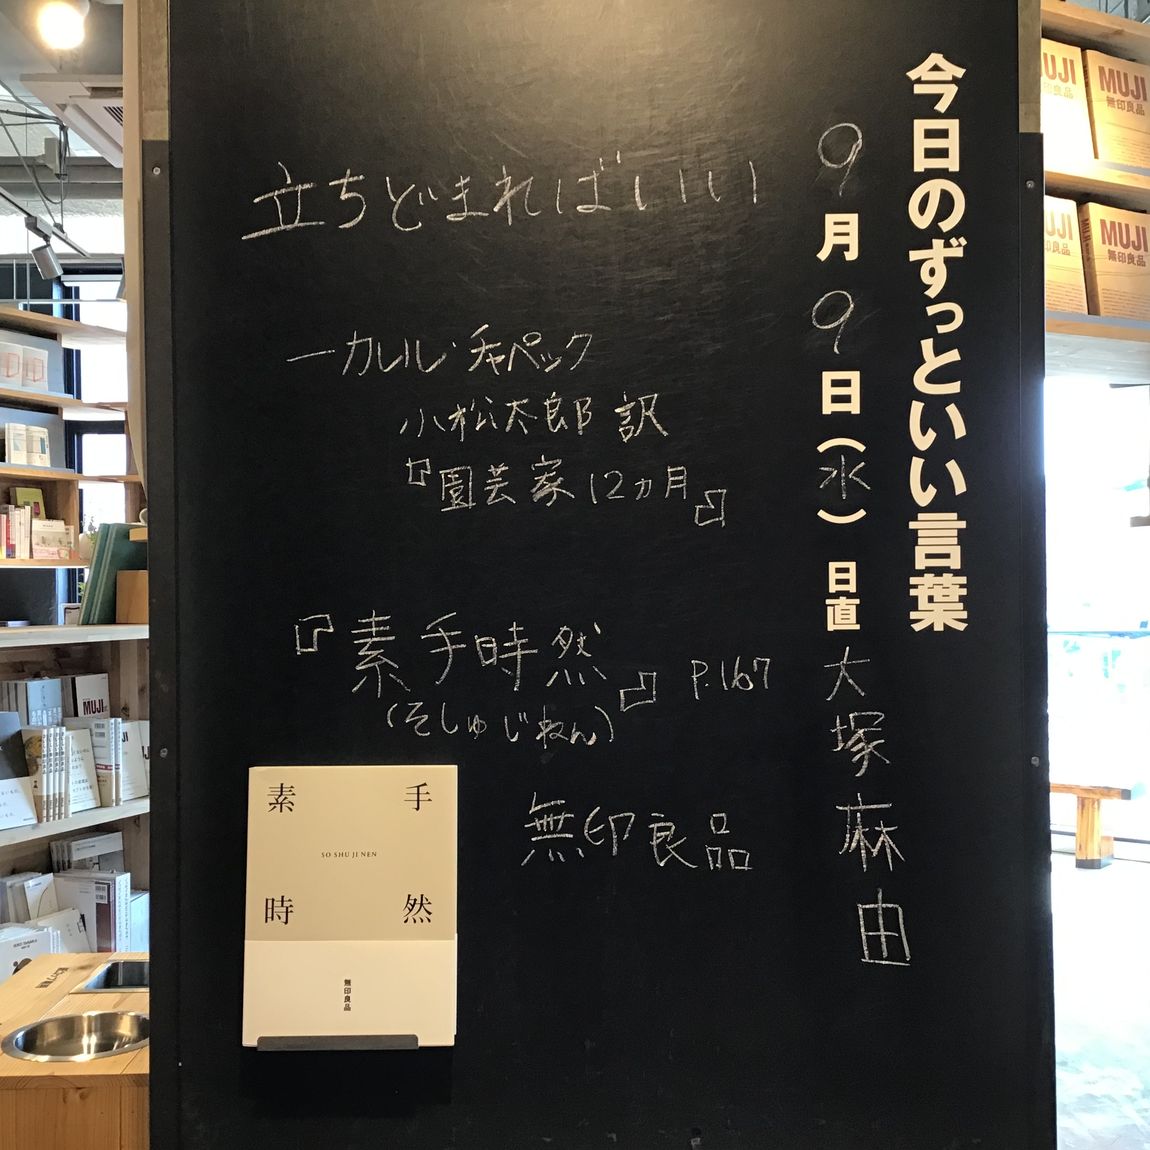 今日のずっといい言葉
9月9日(水) 日直 大塚麻由
立ちどまればいい
ーカレル・チャペック
小松太郎 訳
『園芸家12ヵ月』
『素手時然』 P.167
(そしゅじねん)
無印良品
素 手
SO SHU JI NEN
時 然
無印良品
MUJI
無印良品
MUJI
無印良品
MUJI
無印良品
MUJI
無印良品
MUJI